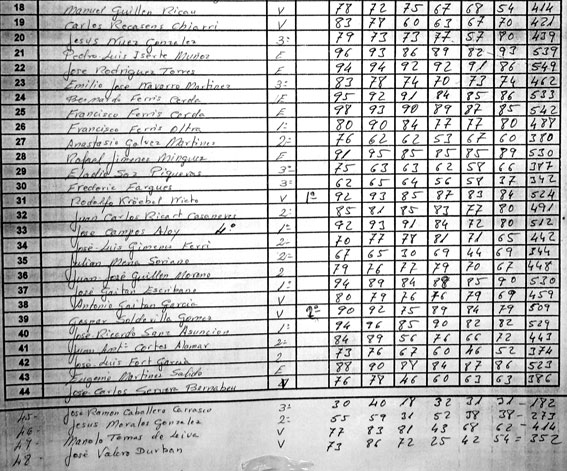 18 Manuel Guillen Ricau V 78 72 75 67 68 54 414
19 Carlos Recasens Chiarri V 83 78 60 63 67 70 421
20 Jesus Nuez Gonzalez 3ª 79 73 73 77 57 80 439
21 Pedro Luis Iserte Muñoz E 96 93 86 89 82 93 539
22 Jose Rodriguez Torres E 94 94 92 92 91 86 549
23 Emilio Jose Navarro Martinez 3ª 83 78 74 70 73 74 462
24 Bernardo Ferris Cerda E 95 92 91 84 85 86 533
25 Francisco Ferris Cerda E 98 93 90 89 87 85 542
26 Francisco Ferris Oltra 1ª 80 90 84 77 77 80 488
27 Anastasio Galvez Martinez 2ª 76 62 62 53 67 60 380
28 Rafael Jimenez Minguez E 91 95 85 85 85 89 530
29 Eladio Saz Piqueras 3ª 75 63 63 62 58 66 387
30 Frederic Fargues 3ª 62 65 64 56 58 37 342
31 Rodolfo Kröebel Nieto V 1º 92 93 85 87 83 84 524
32 Juan Carlos Ricart Casanoves 2ª 85 81 85 83 77 80 491
33 Jose Campos Aloy 4º 1ª 92 93 91 84 72 80 512
34 José Luis Gimeno Ferri 2ª 70 77 78 81 71 65 442
35 Julian Mena Soriano 2ª 67 65 30 69 44 69 344
36 Juan José Guillen Morano 2 79 76 77 79 70 67 448
37 José Gaitan Escribano 1ª 94 89 84 88 85 90 530
38 Antonio Gaitan Garcia V 80 79 76 76 79 69 459
39 Gaspar Gomez V 2º 90 92 75 89 84 79 509
40 José Ricardo Sanz Asuncion 1ª 94 96 85 90 82 82 529
41 Juan Antº Cortes Alamar 2ª 84 89 56 76 66 72 443
42 José Luis Fort Garcia 2 73 76 67 60 46 52 374
43 Eugenio Martinez Salido E 88 90 88 84 87 86 523
44 José Carlos Servera Bernabeu V 76 78 46 60 63 63 386
45- José Ramon Caballero Carrasco 3ª 30 40 18 32 31 31 - 182
46- Jesus Morales Gonzalez 2ª 55 59 31 52 38 38 - 273
47- Manolo Tomas de Leiva V 77 83 81 43 68 62 - 414
48- José Valero Durban V 73 86 72 25 42 54 = 352